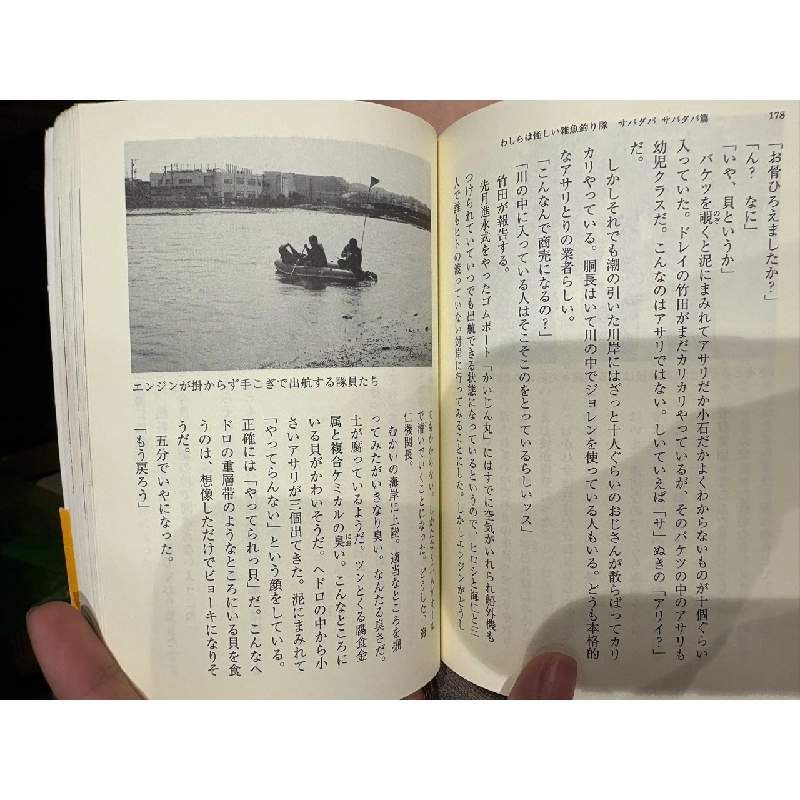 178
わしらは怪しい雑魚釣り隊 サバダバ サバダバ篇
「お骨ひろえましたか?」
「ん? なに」
「いや、貝というか」
バケツを覗くと泥にまみれてアサリだか小石だかよくわからないものが十個ぐらい
入っていた。ドレイの竹田がまだカリカリやっているが、そのバケツの中のアサリも
幼児クラスだ。こんなのはアサリではない。しいていえば「サ」ぬきの「アリイ?」
だ。
しかしそれでも潮の引いた川岸にはざっと十人ぐらいのおじさんが散らばってカリ
カリやっている。胴長はいて川の中でジョレンを使っている人もいる。どうも本格的
なアサリとりの業者らしい。
「こんなんで商売になるの?」
「川の中に入っている人はそこそこのをとっているらしいッス」
竹田が報告する。
先月進水式をやったゴムボート「かいじん丸」にはすでに空気がいれられ船外機も
つけられていていつでも出航できる状態になっているというので、ヒロシと海仁と三
人で誰もヒトの渡っていない対岸に行ってみることにした。しかしエンジンがどうし
で漕いでいくことになった。
仁機関長。
むかいの海岸に上陸。適当なところを掘
ってみたがいきなり臭い。なんたる臭さだ。
土が腐っているようだ。ツンとくる腐食金
属と複合ケミカルの臭い。こんなところに
いる貝がかわいそうだ。ヘドロの中から小
さいアサリが三個出てきた。泥にまみれて
「やってらんない」という顔をしている。
正確には「やってられっ貝」だ。こんなヘ
ドロの重層帯のようなところにいる貝を食
うのは、想像しただけでビョーキになりそ
うだ。
五分でいやになった。
「もう戻ろう」
エンジンが掛からず手こぎで出航する隊員たち